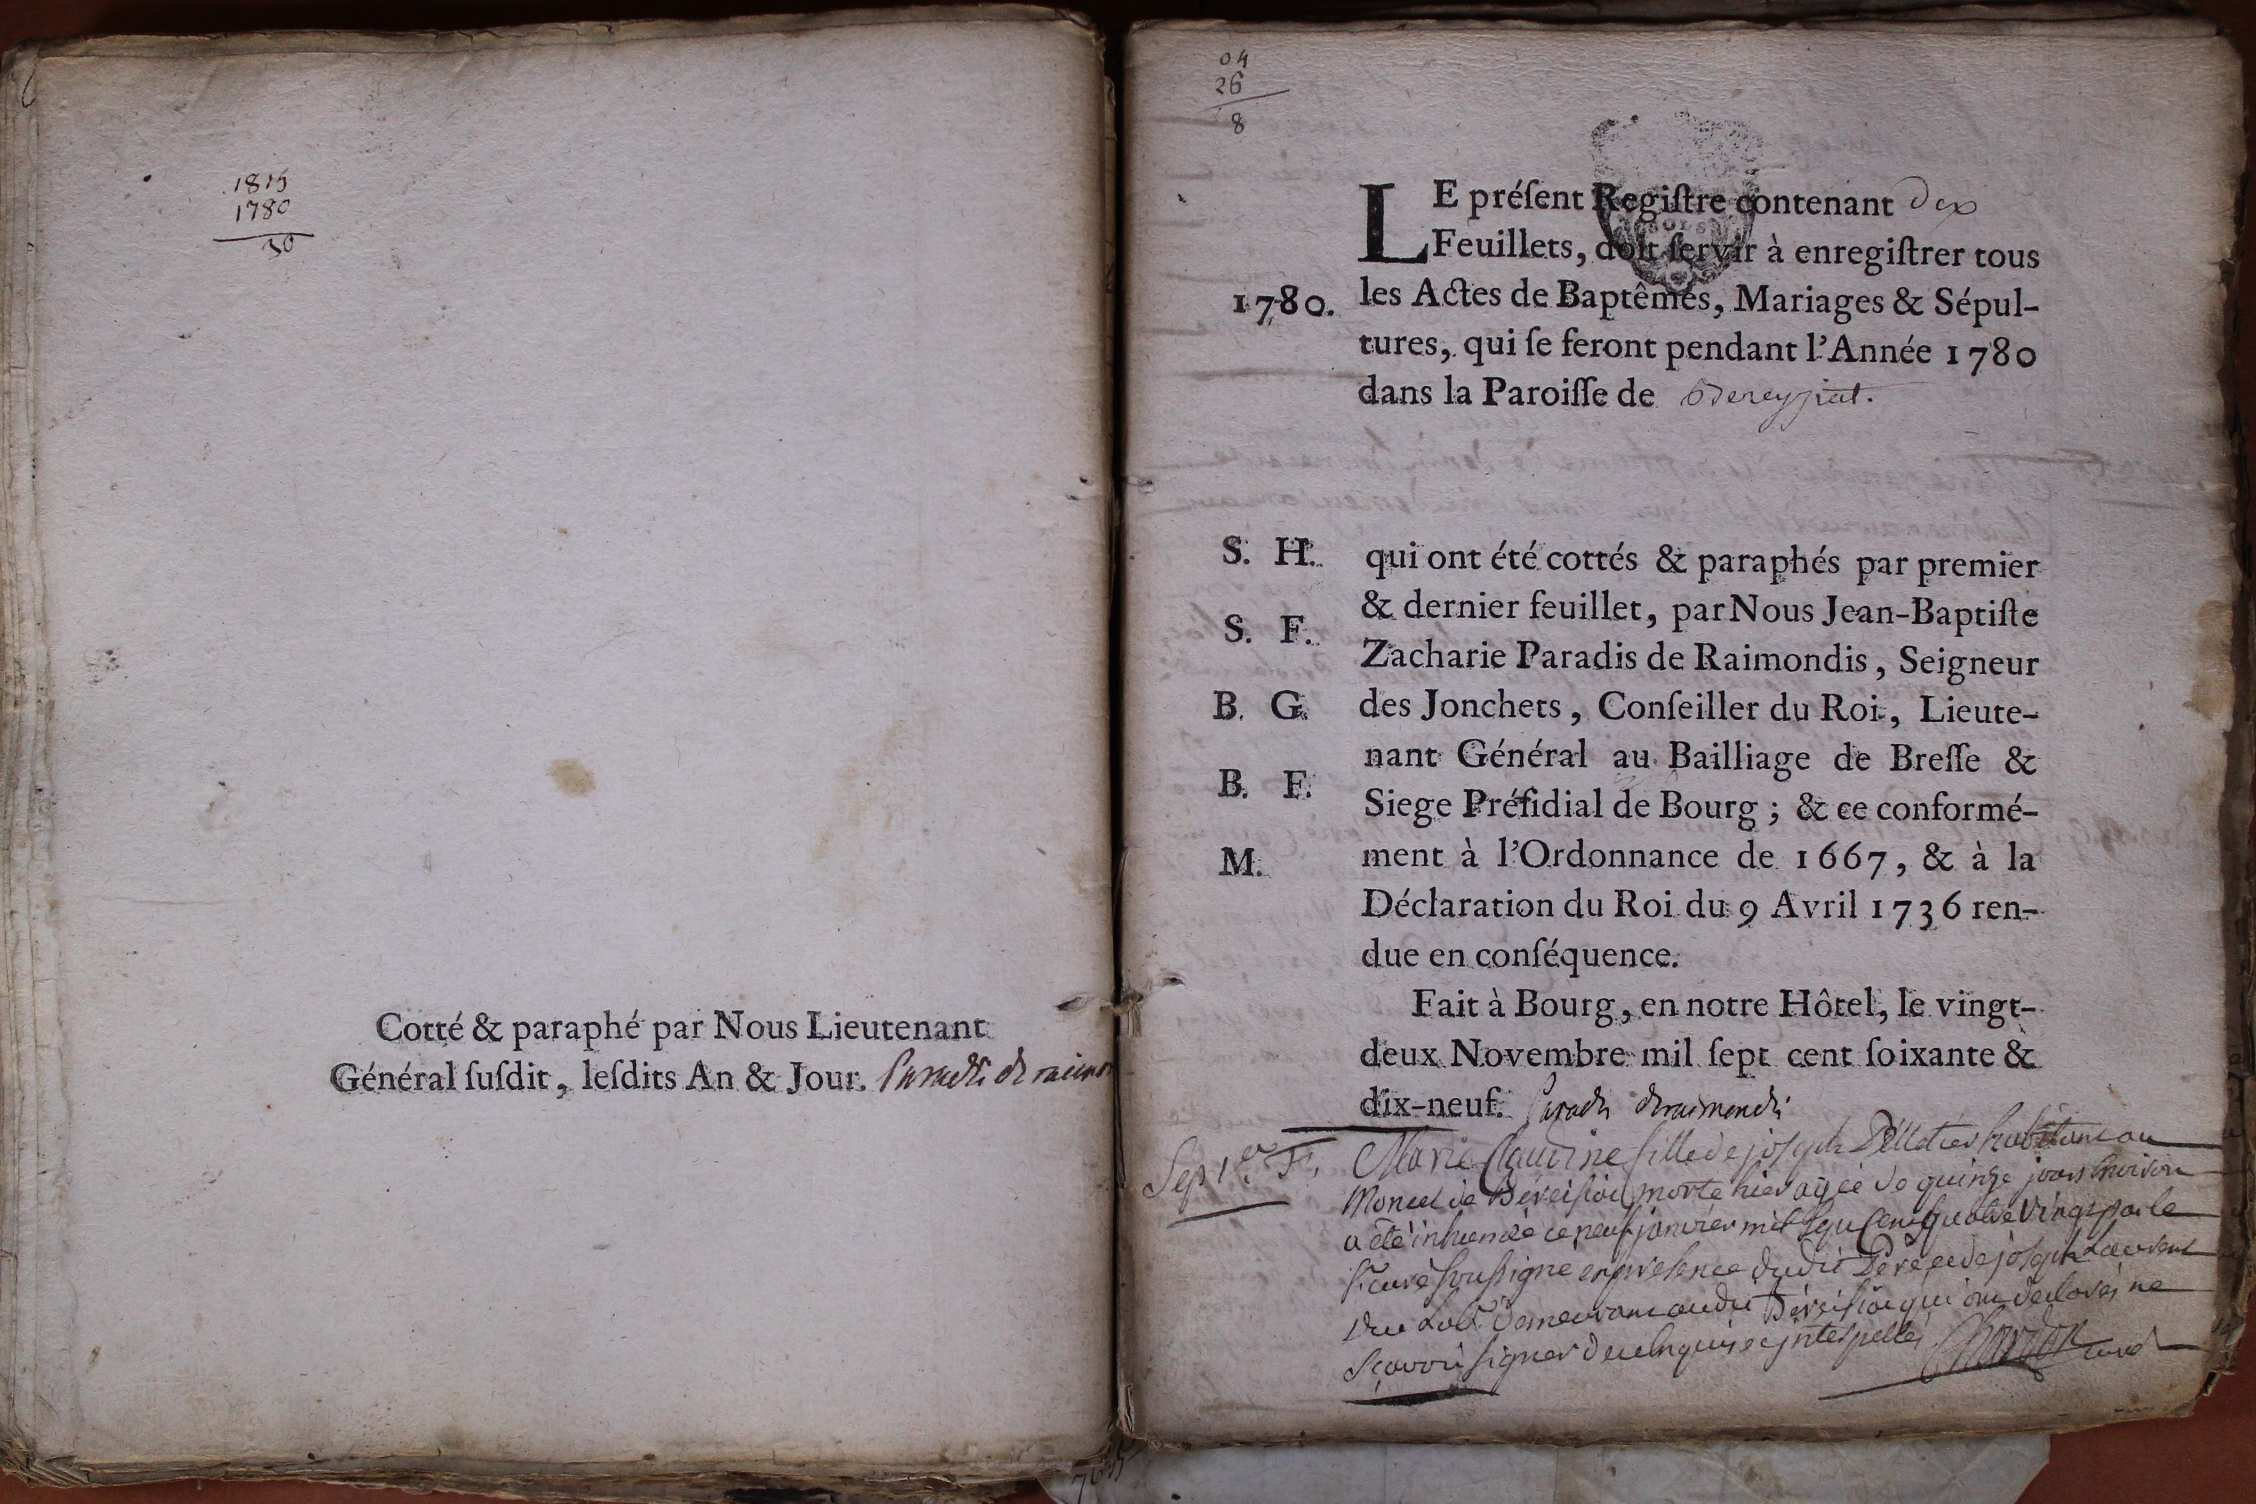 1815
1780
30
Cotté & paraphé par Nous Lieutenant
Général ſuſdit, leſdits An & Jour. Paradis de raimon
04
26
8
LE préſent Regiſtre contenant dix
Feuillets, doit ſervir à enregiſtrer tous
1780. les Actes de Baptêmes, Mariages & Sépul-
tures, qui ſe feront pendant l'Année 1780
dans la Paroiſſe de Dereyziat.
S. H. qui ont été cottés & paraphés par premier
& dernier feuillet, par Nous Jean-Baptiſte
S. F. Zacharie Paradis de Raimondis, Seigneur
B. G. des Jonchets, Conſeiller du Roi, Lieute-
nant Général au Bailliage de Breſſe &
B. F. Siege Préſidial de Bourg; & ce conformé-
M. ment à l'Ordonnance de 1667, & à la
Déclaration du Roi du 9 Avril 1736 ren-
due en conſéquence.
Fait à Bourg, en notre Hôtel, le vingt-
deux Novembre mil ſept cent ſoixante &
dix-neuf. Paradis deraimondis
Sep 1.er F. Marie Claudine fille de joseph Pelletier habitant au
Moncel de morte hier agée de quinze jours environ
a été inhumée ce neuf janvier mil sept cens quatre vingt par le
Sr. curé soussigné en présence dudit Père et de joseph Laurent
demeurant audit qui ont declarés ne
sçavoir signer de ce enquis et interpellés curé